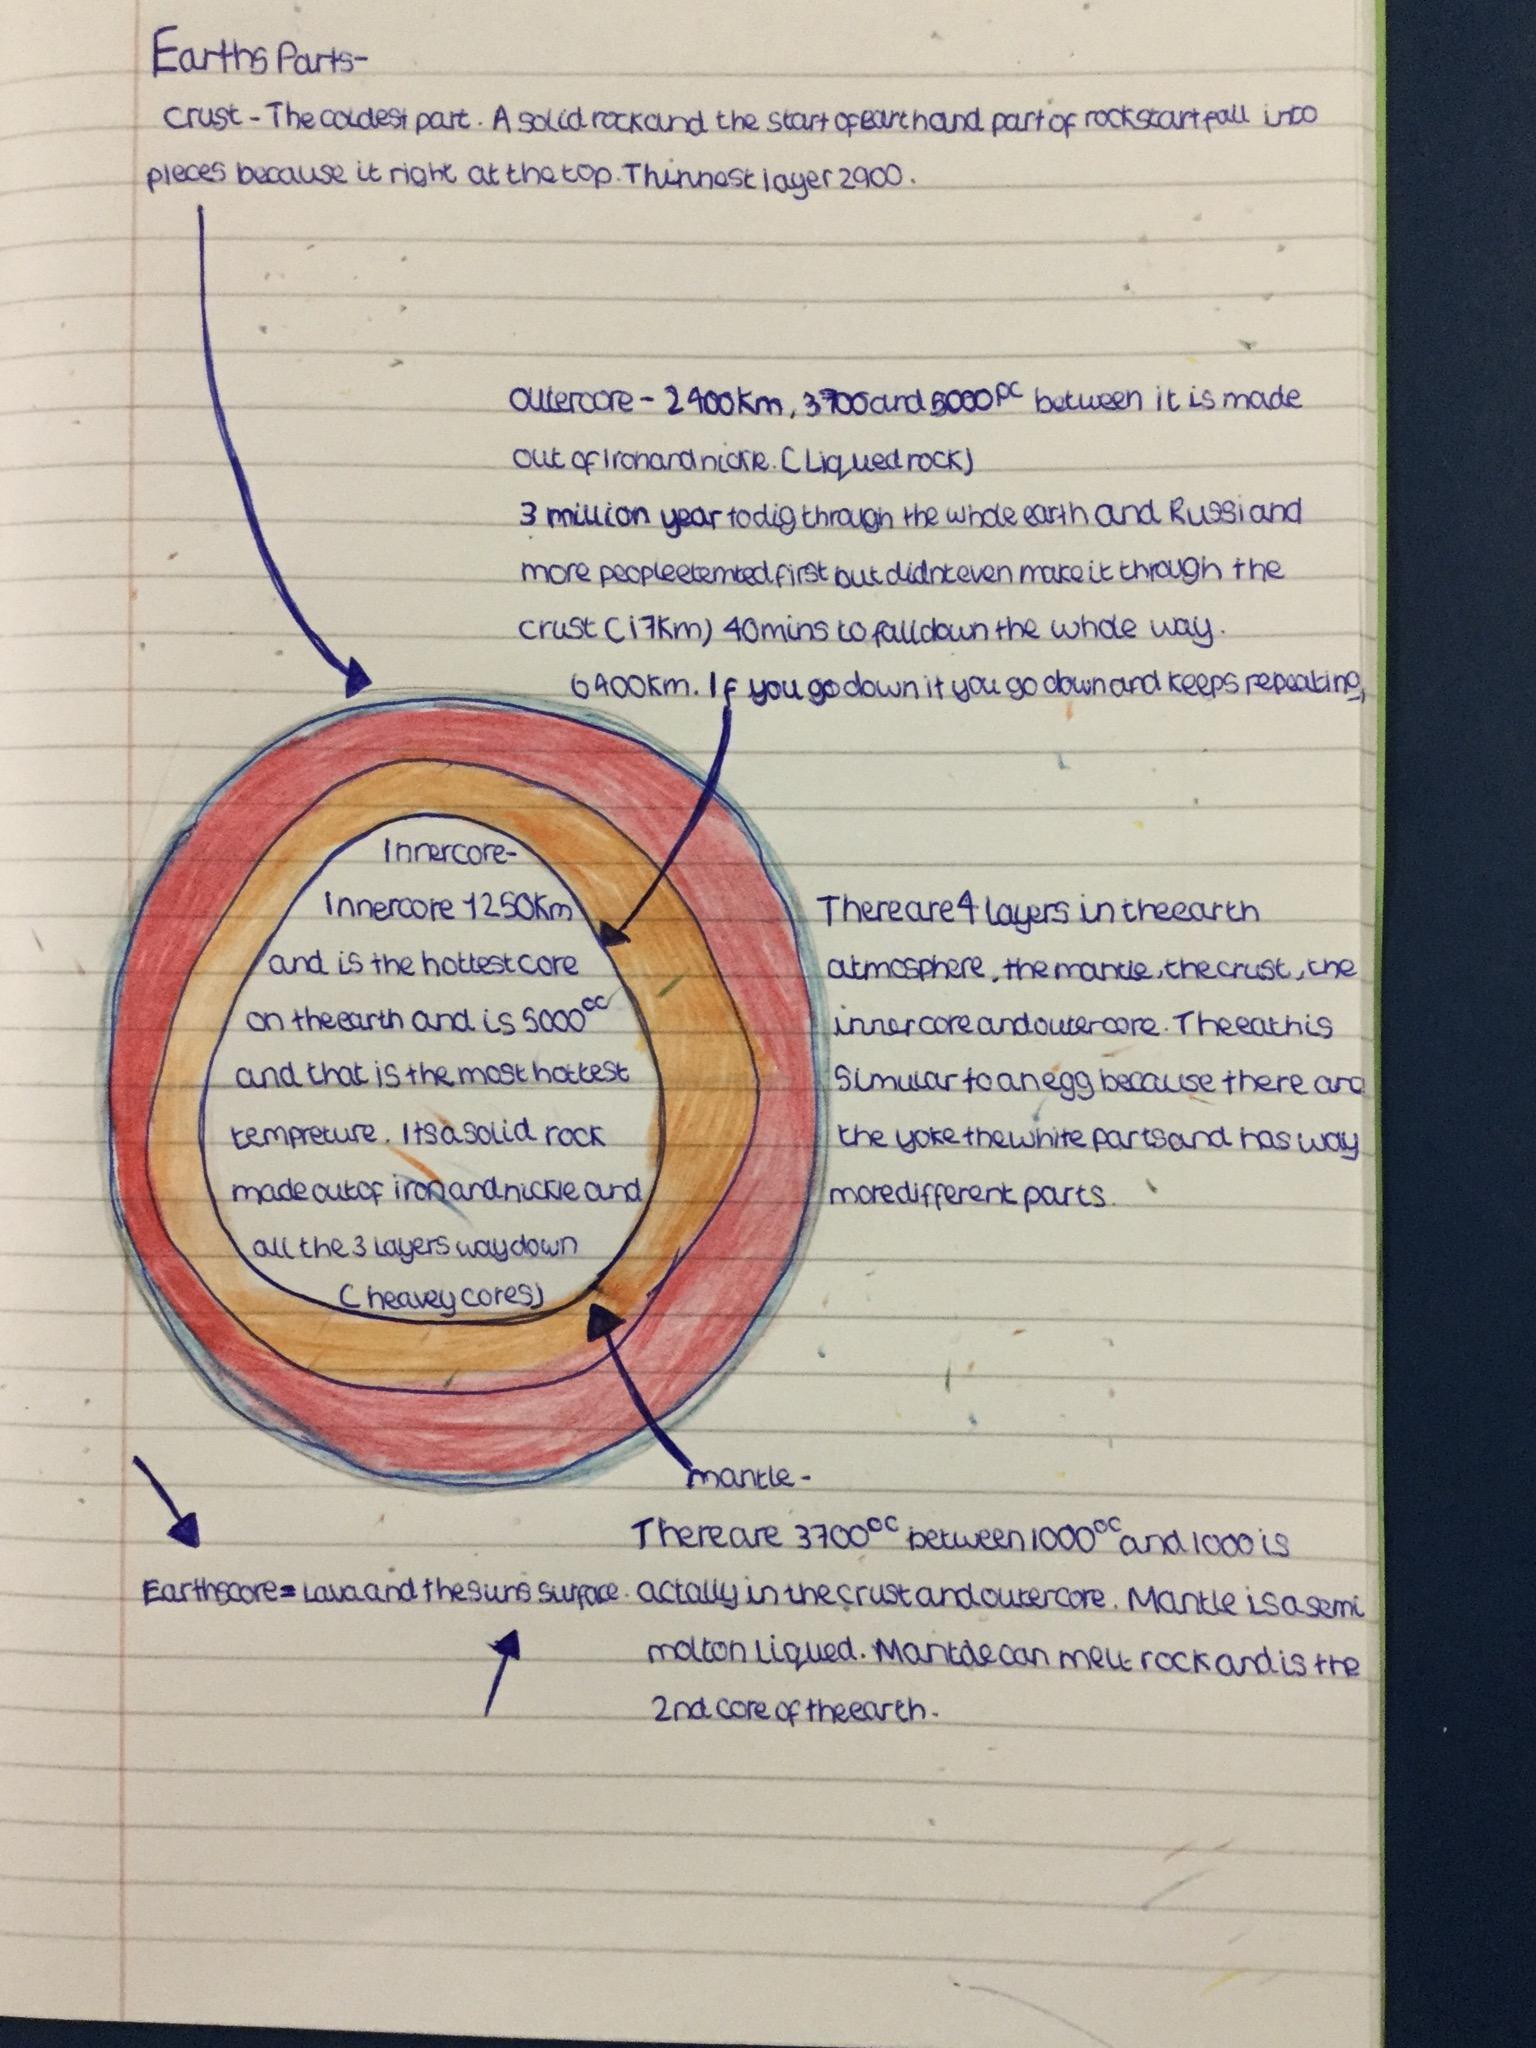 Earths Parts-
crust - The coldest part. A solid rock and the start of Earth and part of rock start fall into
pieces because it right at the top. Thinnest layer 2900.
outercore - 2400km, 3700 and 5000°C between it is made
out of Iron and nickle. (Liqued rock)
3 million year to dig through the whole earth and Russi and
more people etemted first but didnt even make it through the
crust (17km) 40 mins to fall down the whole way.
6400km. If you go down it you go down and keeps repeating,
Innercore-
Innercore 1250km
and is the hottest core
on the earth and is 5000°C
and that is the most hottest
tempreture. Its a solid rock
made out of iron and nickle and
all the 3 layers way down
(heavey cores)
There are 4 layers in the earth
atmosphere, the mantle, the crust, the
inner core and outercore. The eath is
Simular to an egg because there are
the yoke the white parts and has way
more different parts.
mantle -
There are 3700°C between 1000°C and 1000 is
actally in the crust and outercore. Mantle is a semi
molton liqued. Mantle can melt rock and is the
2nd core of the earth.
Earths core = Lava and the suns surface.